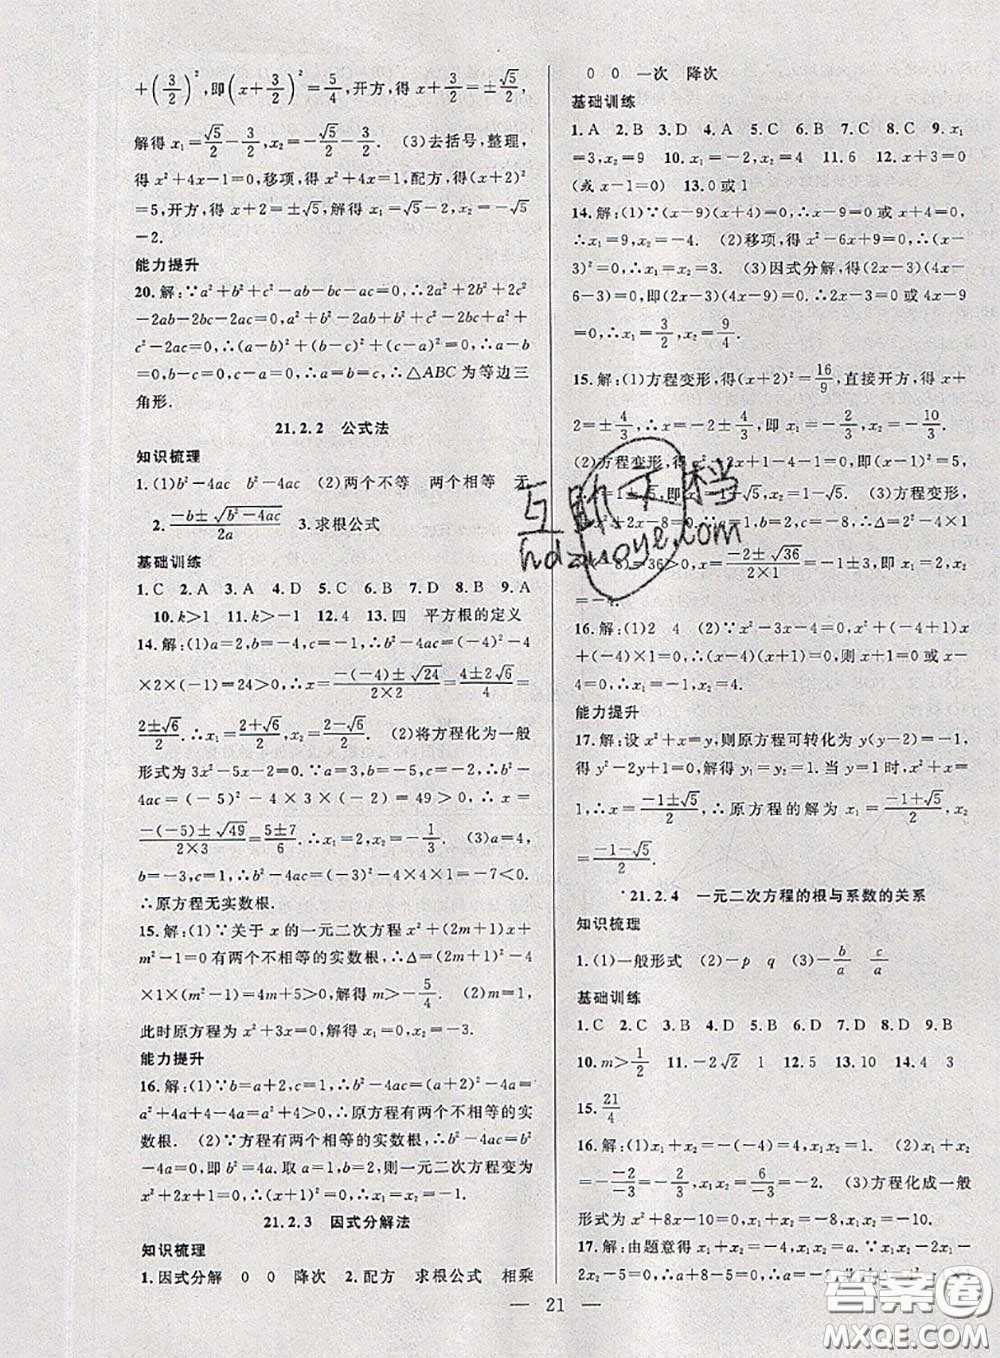 +(3/2)²,即(x+3/2)²=5/4,开方,得x+3/2=±√5/2,
解得x₁=√5/2-3/2,x₂=-√5/2-3/2. (3)去括号,整理,
得x²+4x-1=0,移项,得x²+4x=1,配方,得(x+2)²
=5,开方,得x+2=±√5,解得x₁=√5-2,x₂=-√5
-2.
能力提升
20.解:∵a²+b²+c²-ab-bc-ac=0,∴2a²+2b²+2c²
-2ab-2bc-2ac=0,a²+b²-2ab+b²+c²-2bc+a²+
c²-2ac=0,∴(a-b)²+(b-c)²+(c-a)²=0,∴a-b
=0,b-c=0,c-a=0,∴a=b=c,∴△ABC为等边三
角形.
21.2.2 公式法
知识梳理
1.(1)b²-4ac b²-4ac (2)两个不等 两个相等 无
2.(-b±√(b²-4ac))/2a 3.求根公式
基础训练
1.C 2.A 3.A 4.D 5.C 6.D 7.D 8.B 9.A
10.k>1 11.k>-1 12.4 13.四 平方根的定义
14.解:(1)a=2,b=-4,c=-1,∴b²-4ac=(-4)²-4
×2×(-1)=24>0,∴x=(-(-4)±√24)/(2×2)=(4±2√6)/4=
(2±√6)/2.∴x₁=(2+√6)/2,x₂=(2-√6)/2. (2)将方程化为一般
形式为3x²-5x-2=0.∵a=3,b=-5,c=-2,∴b²-
4ac=(-5)²-4×3×(-2)=49>0,∴x=
(-(-5)±√49)/(2×3)=(5±7)/6.∴x₁=2,x₂=-1/3. (3)a=4,
b=-3,c=1,∴b²-4ac=(-3)²-4×4×1=-7<0.
∴原方程无实数根.
15.解:(1)∵关于x的一元二次方程x²+(2m+1)x+
m²-1=0有两个不相等的实数根,∴Δ=(2m+1)²-4
×1×(m²-1)=4m+5>0,解得m>-5/4. (2)m=1,
此时原方程为x²+3x=0,解得x₁=0,x₂=-3.
能力提升
16.解:(1)∵b=a+2,∴b²-4ac=(a+2)²-4×a=
a²+4a+4-4a=a²+4>0,∴原方程有两个不相等的实
数根. (2)∵方程有两个相等的实数根,∴b²-4ac=b²
-4a=0,即b²=4a.取a=1,b=2,则一元二次方程变为
x²+2x+1=0,∴(x+1)²=0,∴x₁=x₂=-1.
21.2.3 因式分解法
知识梳理
1.因式分解 0 0 降次 2.配方 求根公式 相乘
0 0 一次 降次
基础训练
1.A 2.B 3.D 4.A 5.C 6.B 7.C 8.C 9.x₁
=3,x₂=9 10.x₁=-2,x₂=4 11.6 12.x+3=0
(或x-1=0) 13.0或1
14.解:(1)∵(x-9)(x+4)=0,∴x-9=0或x+4=0,
∴x₁=9,x₂=-4. (2)移项,得x²-6x+9=0,∴(x-
3)²=0,∴x₁=x₂=3. (3)因式分解,得(2x-3)(4x-
6-3)=0,即(2x-3)(4x-9)=0.∴2x-3=0或4x-9
=0,∴x₁=3/2,x₂=9/4.
15.解:(1)方程变形,得(x+2)²=16/9,直接开方,得x+
2=±4/3,∴x=-2±4/3,即x₁=-2/3,x₂=-10/3.
(2)方程变形,得x²-2x+1-1-4=0,即(x-1)²=5.
=1-√5. (3)方程变形,
+2x-8=0,∴a=1,b=2,c=-8,∴Δ=2²-4×
-8)=36>0,x=(-2±√36)/(2×1)=-1±3,即x₁=2,x₂
=-4.
16.解:(1)2 4 (2)∵x²-3x-4=0,x²+(-4+1)x
+(-4)×1=0,∴(x-4)(x+1)=0,则x+1=0或x-
4=0,解得x₁=-1,x₂=4.
能力提升
17.解:设x²+x=y,则原方程可转化为y(y-2)=-1,
得y²-2y+1=0,解得y₁=y₂=1.当y=1时,x²+x=
1,∴x=(-1±√5)/2,∴原方程的解为x₁=(-1+√5)/2,x₂
=(-1-√5)/2.
21.2.4 一元二次方程的根与系数的关系
知识梳理
1.(1)一般形式 (2)-p q (3)-b/a c/a
基础训练
1.C 2.C 3.B 4.D 5.D 6.B 7.D 8.D 9.B
10.m>1/2 11.-2√2 1 12.5 13.10 14.4 3
15.21/4
16.解:(1)x₁+x₂=-(-4)=4,x₁x₂=1. (2)x₁+x₂
=-(-2)/(-3)=-2/3,x₁x₂=6/(-3)=-2. (3)方程化成一般
形式为x²+8x-10=0,x₁+x₂=-8,x₁x₂=-10.
17.解:由题意得x₁+x₂=-4,x₁x₂
2x₂-5=0,∴a+8-5=0,∴a=-3.
21
互助文档
hdzuoye.com
答案圈
MXQE.COM